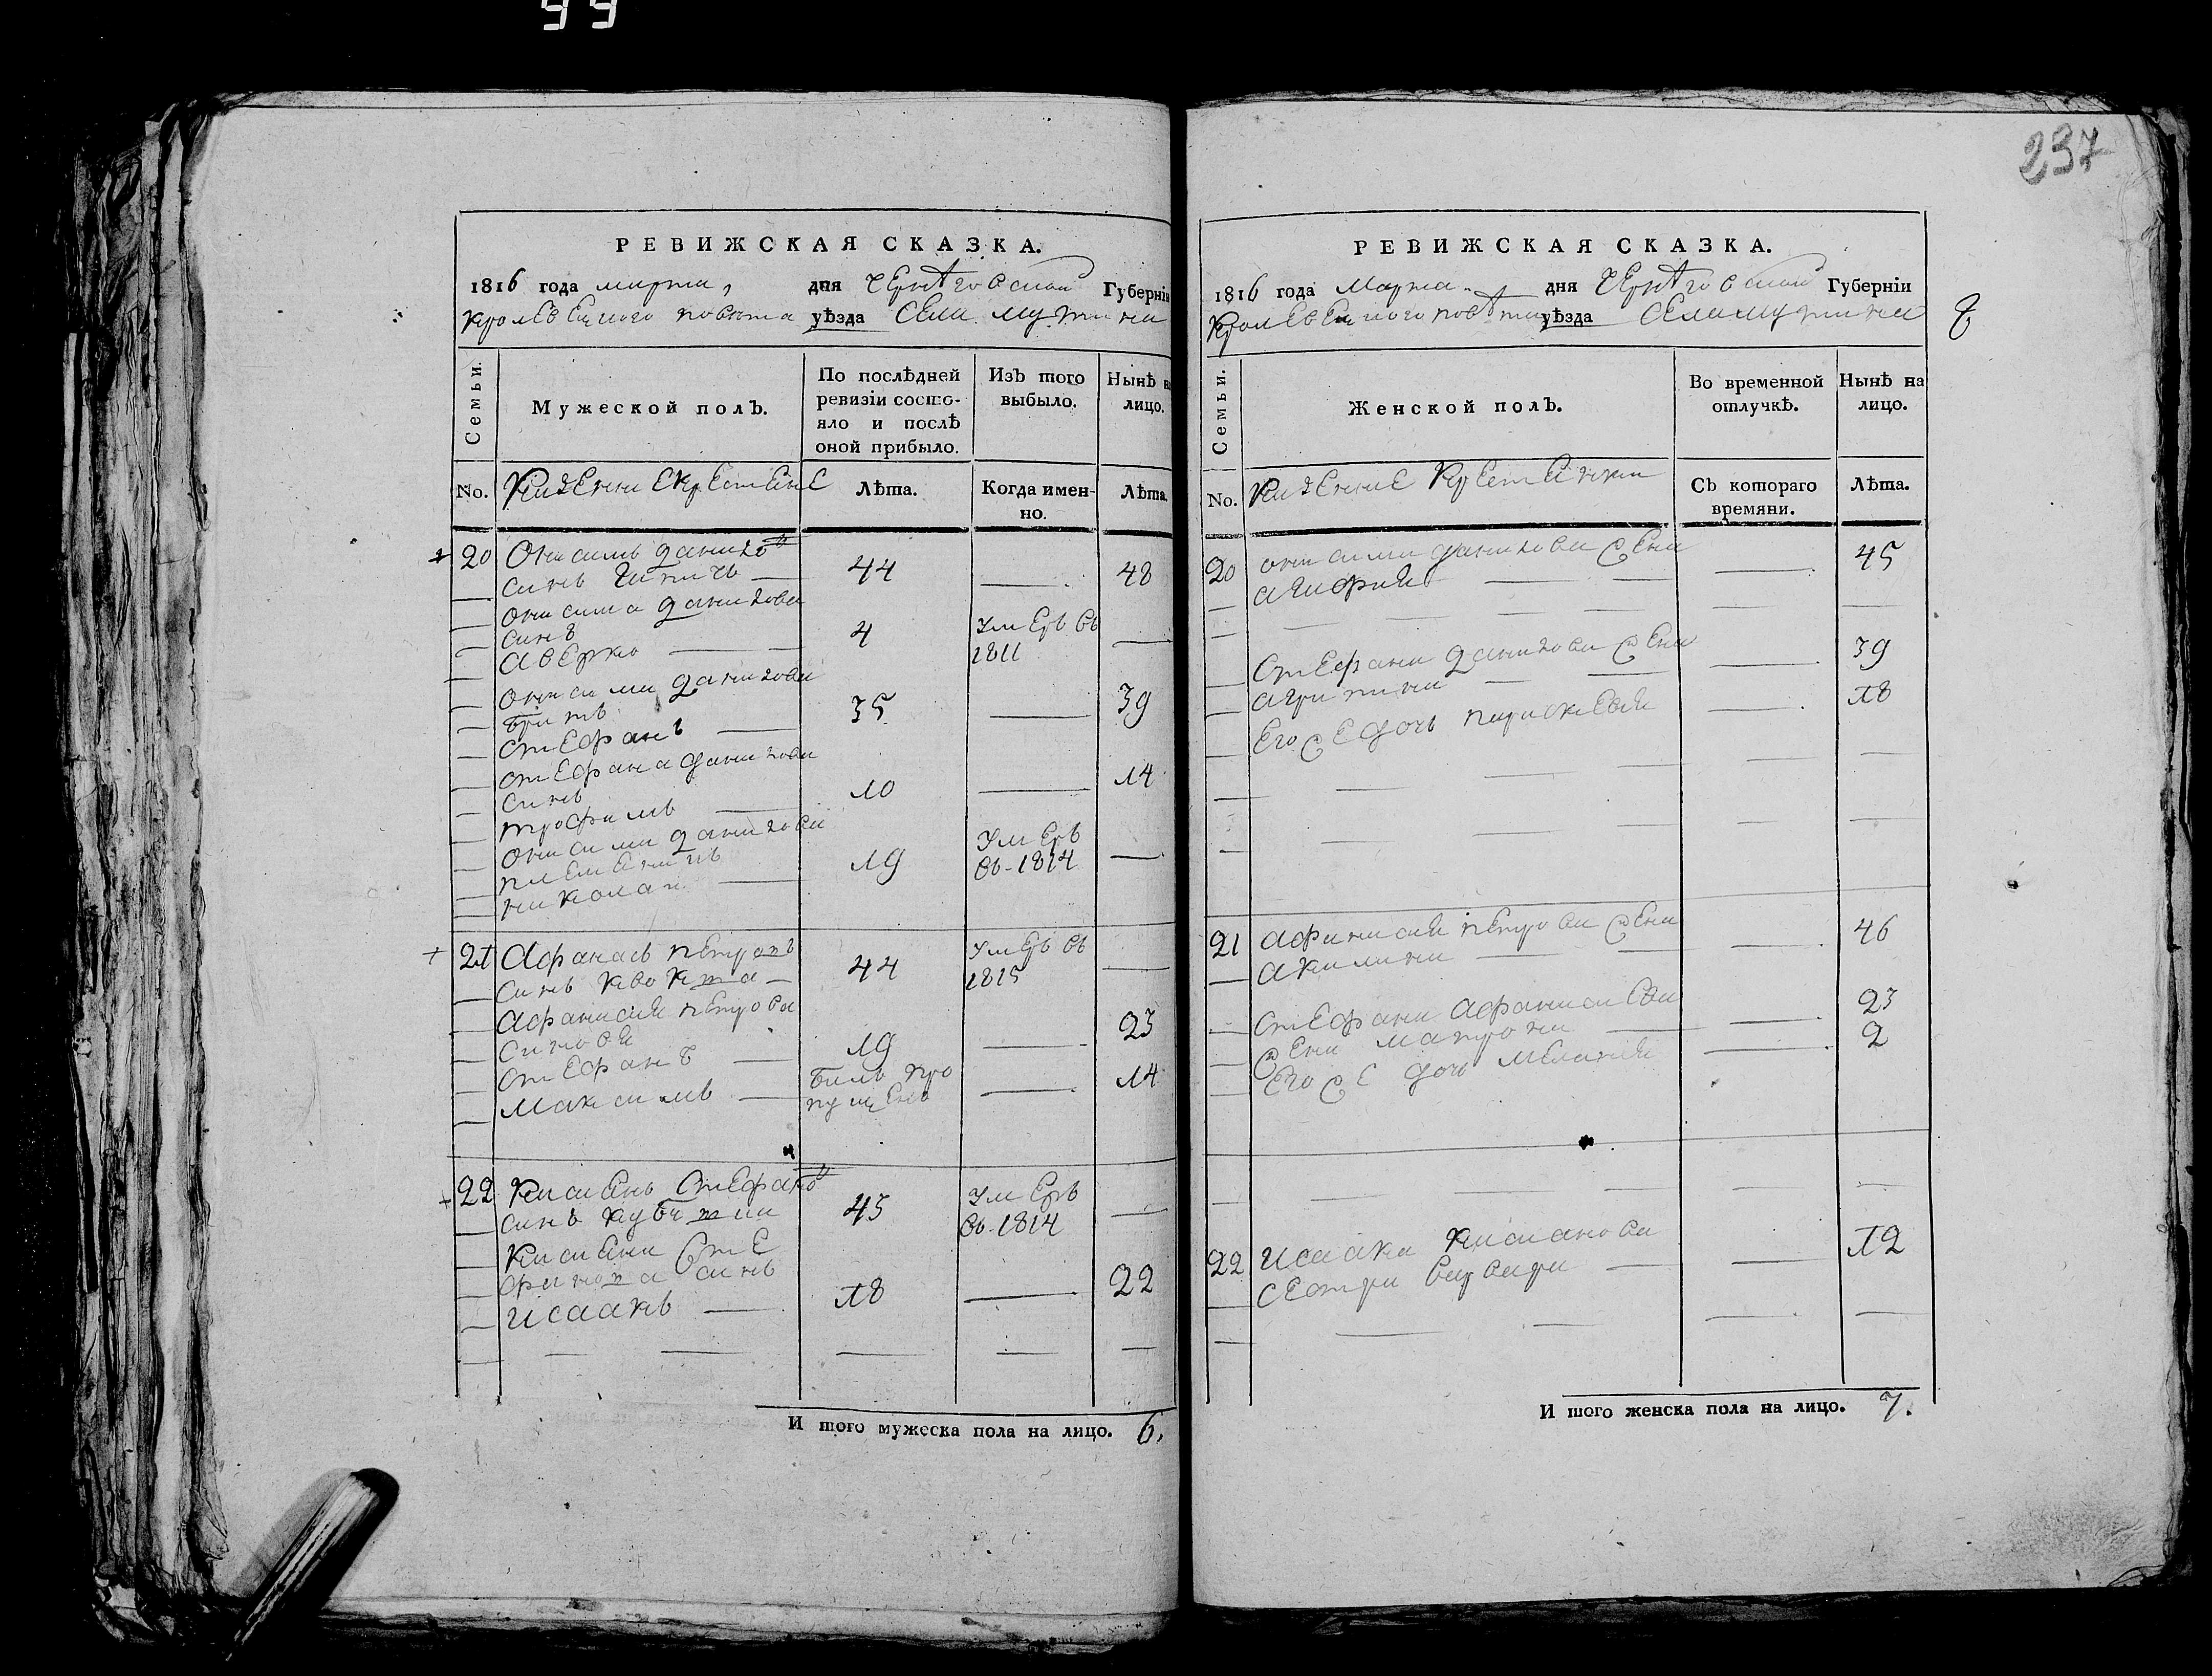 99
237
РЕВИЖСКАЯ СКАЗКА.
1816 года марта, дня Чернѣговской Губерніи
Кролевецкого повета уѣзда Села Мутина
Семьи.
Мужеской полъ.
По послѣдней ревизіи состояло и послѣ оной прибыло.
Изъ того выбыло.
Нынѣ на лицо.
No. Казенни Крестяне Лѣта. Когда именно. Лѣта.
20 Онисимъ Данило
синъ 44 — 48
Онисима Данилова
синъ
Аверко — 4 Умеръ въ 1811 —
Онисима Данилова
братъ
Стефанъ — 35 — 39
Стефана Данилова
синъ
Трофимъ — 10 — 14
Онисима Данилова
племеникъ
Николай — 19 Умеръ въ - 1814 —
21 Афанасъ Петровъ
синъ Квокта — 44 Умеръ въ 1815 —
Афанасия Петрова
синовя
Стефанъ — 19 — 23
Максимъ — билъ пропущенъ — 14
22 Касянъ Стефано
синъ 45 Умеръ въ - 1814 —
Касяна Сте
фанова синъ
Исаакъ — 18 — 22
И того мужеска пола на лицо. 6.
РЕВИЖСКАЯ СКАЗКА.
1816 года Марта дня Чернѣговской Губерніи
Кролевецкого повета уѣзда Села Мутина
8
Семьи.
Женской полъ.
Во временной отлучкѣ.
Нынѣ на лицо.
No. Казенние Крестянки Съ котораго времяни. Лѣта.
20 Онисима Данилова жена
Агафия — — 45
Стефана Данилова жена
Агрипина — — 39
Его же дочь Параскевия — 18
21 Афанасия Петрова жена
Акилина — — 46
Стефана Афанасиева
жена Матрона — — 23
Его же дочь Мелания — 2
22 Исаака Касианова
сестра Варвара — — 12
И того женска пола на лицо. 7.